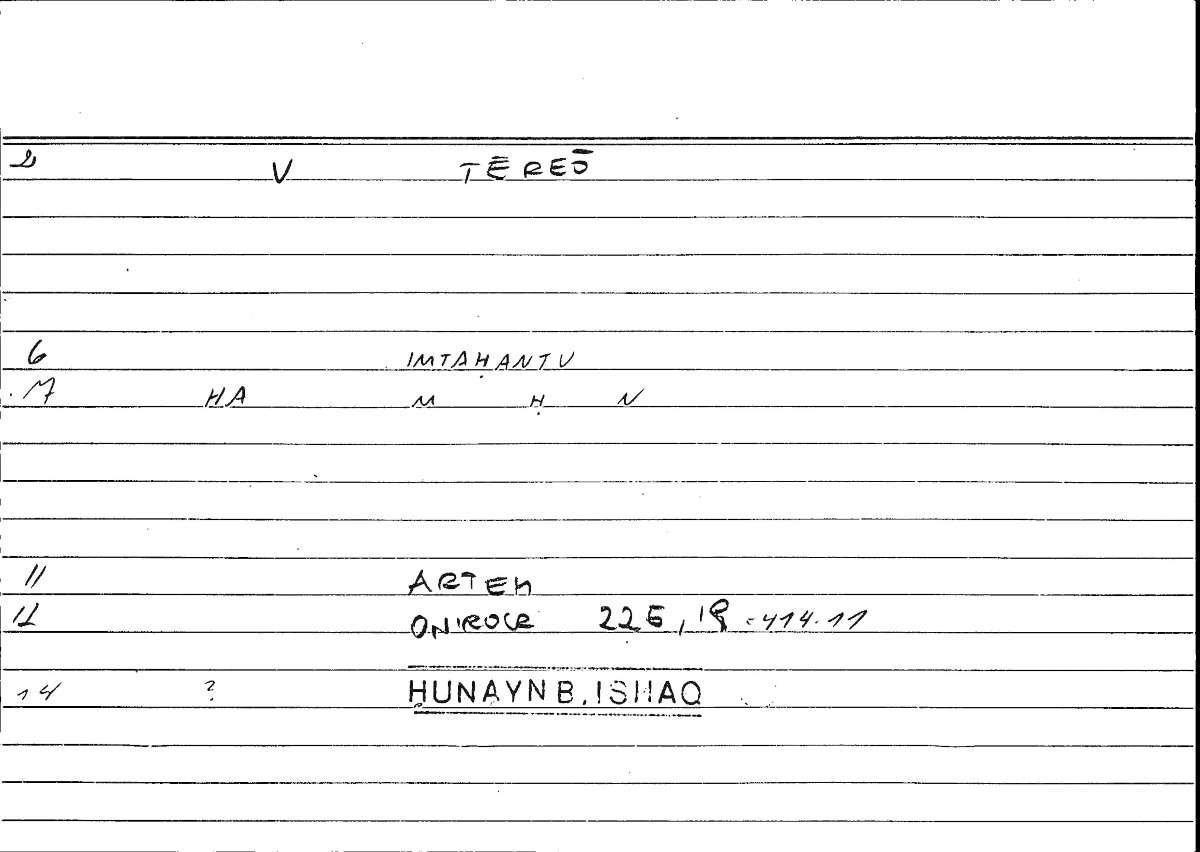 2 V TĒREŌ
6 IMTAḤANTU
7 HA M Ḥ N
11 ARTEM
12 ONIROCR 225,19 = 414.11
14 ? ḤUNAYN B. ISḤAQ